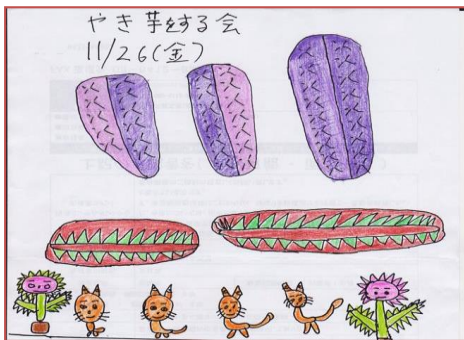 やき芋をする会
11/26(金)